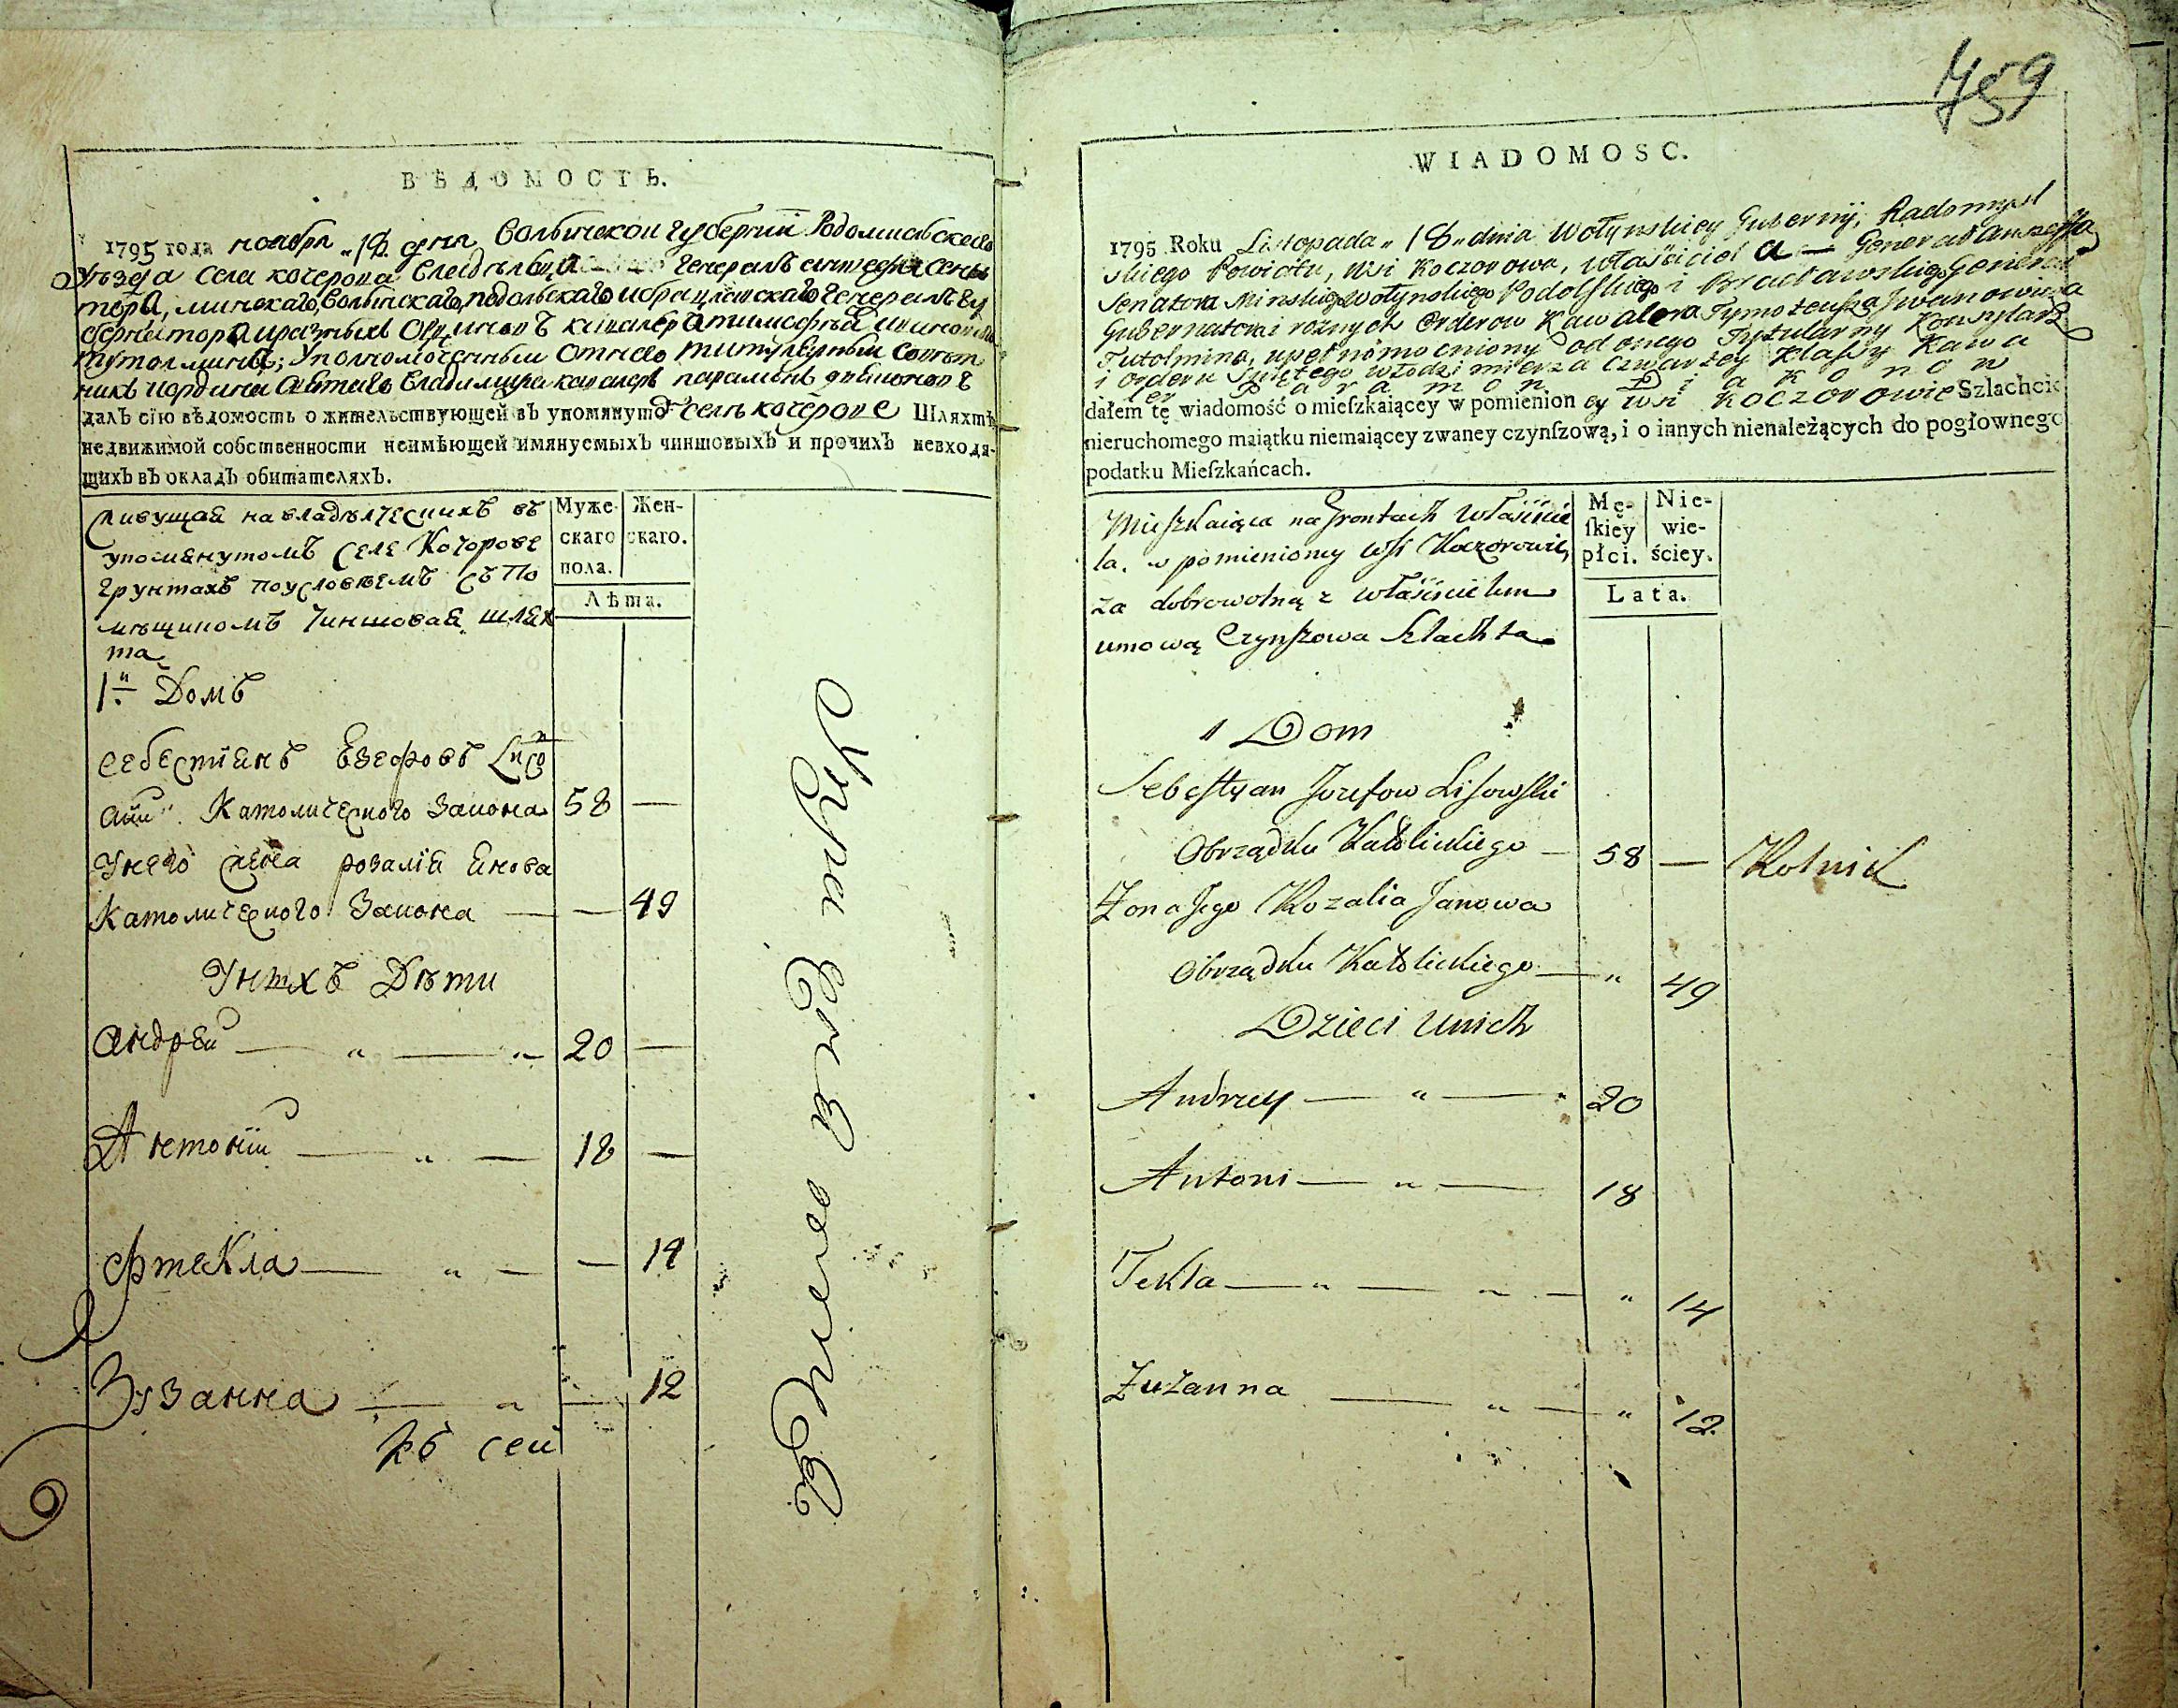 759
ВѢДОМОСТЬ.
1795 года ноября 18 дня Волынской губернии Радомысльскаго
уѣзда села Кочерова владѣльца генералъ аншефа сена
тора, минскаго, волынскаго, подольскаго и брацлавскаго генералъ гу
бернатора и разныхъ орденовъ кавалера тимофея ивановича
тутолмина; уполномоченный отнего титулярный совѣт
никъ и ордена святаго владимира кавалеръ парамонъ дьяконовъ
далъ сію вѣдомость о жительствующей въ упомянутомъ селѣ кочерове Шляхтѣ
недвижимой собственности неимѣющей имянуемыхъ чиншовыхъ и прочихъ невходя-
щихъ въ окладъ обитателяхъ.
Живущая на владѣлческихъ въ
упомянутомъ селе Кочорове
грунтахъ поусловіемъ съ По
мѣщикомъ Чиншовая шлях
та
Муже-
скаго
пола.
Жен-
скаго.
Лѣта.
1й Домъ
Себестиянъ Езефовъ Лисов
ский Католическаго Закона 58 —
Унего жена розалія Янова
Католическаго Закона — — 49
Унихъ Дѣти
Андрей — „ — „ 20 —
Антоній — „ — 18 —
Фтекла — „ — — 14
Зузанна — „ — 12
къ сей
WIADOMOSC.
1795 Roku Listopada „ 18 „ dnia Wołynskiey Gubernij, Radomysl
skiego Powiatu, wsi Koczorowa, właściciel a — Generał Anszeffa
Senatora Minskiego Wołynskiego Podolskiego i Bracławskiego Generał
Gubernatora i roznych Orderow Kawalera Tymoteusza Iwanowicza
Tutolmina, upełnomocniony od onego Tytularny Konsyliarz
i orderu Swiętego Włodzimierza czwartey klassy Kawa
ler Paramon Diakonow
dałem tę wiadomość o mieſzkaiącey w pomienion ey wsi Koczorowie Szlachcie
nieruchomego maiątku niemaiącey zwaney czynſzową, i o innych nienależących do pogłownego
podatku Mieſzkańcach.
Mieszkaiąca na Grontach właścicie
la. w pomienioney wsi Koczorowie,
za dobrowolną z właścicielem
umową Czynszowa Szlachta
Mę-
ſkiey
płci.
Nie-
wie-
ściey.
Lata.
1 Dom
Sebestyan Jozefow Lisowski
Obrządku Katolickiego — 58 — Rolnik
Zona Jego Rozalia Janowa
Obrządku Katolickiego — „ 49
Dzieci Unich
Andrzey — „ — „ 20
Antoni — „ — 18
Tekla — „ — „ — „ 14
Zuzanna — „ — „ 12